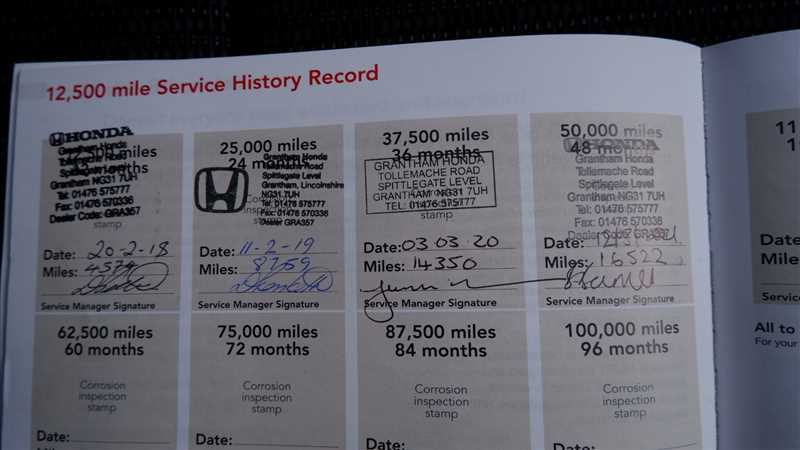 12,500 mile Service History Record
HONDA
Grantham Honda
Tollemache Road
Spittlegate Level
Grantham NG31 7UH
Tel: 01476 575777
Fax: 01476 570336
Dealer Code: GRA357
miles
months
stamp
Date: 20-2-18
Miles: 4574
Service Manager Signature
25,000 miles
24 months
Grantham Honda
Tollemache Road
Spittlegate Level
Grantham, Lincolnshire
NG31 7UH
Tel: 01476 575777
Fax: 01476 570336
Dealer Code: GRA357
stamp
Date: 11-2-19
Miles: 8759
Service Manager Signature
37,500 miles
36 months
GRANTHAM HONDA
TOLLEMACHE ROAD
SPITTLEGATE LEVEL
GRANTHAM NG31 7UH
TEL: 01476 575777
stamp
Date: 03.03.20
Miles: 14350
Service Manager Signature
50,000 miles
48 months
HONDA
Grantham Honda
Tollemache Road
Spittlegate Level
Grantham NG31 7UH
Tel: 01476 575777
Fax: 01476 570336
Dealer Code: GRA357
Date:
Miles: 16522
Service Manager Signature
62,500 miles
60 months
Corrosion
inspection
stamp
Date:
75,000 miles
72 months
Corrosion
inspection
stamp
Date:
87,500 miles
84 months
Corrosion
inspection
stamp
Date:
100,000 miles
96 months
Corrosion
inspection
stamp
Date:
11
Date:
Miles:
Service
All to
For your